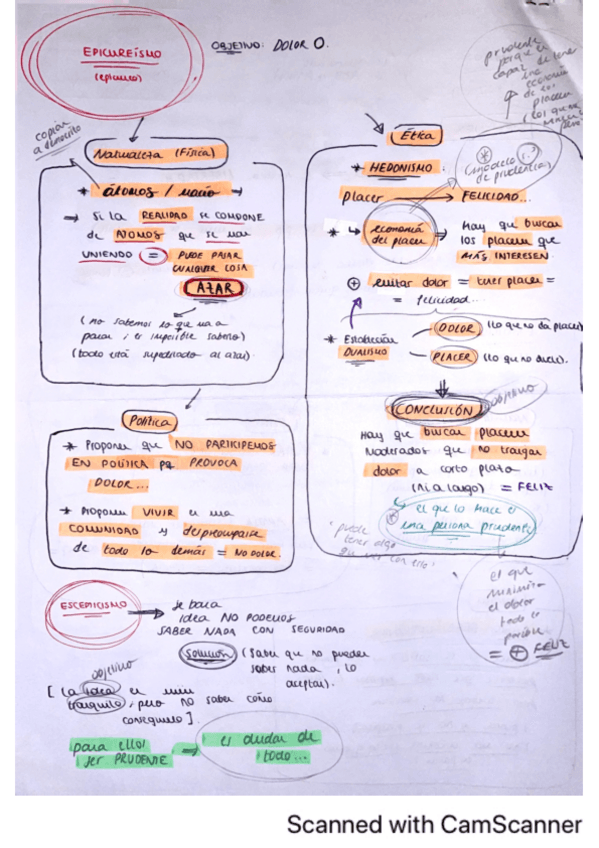 EPICUREÍSMO
(epicuro)
OBJETIVO: DOLOR 0.
prudente
porque es
capaz de tener
una
economía
de los
placeres
copian
a Demócrito
Naturaleza (Física)
* átomos / vacío
→ Si la REALIDAD se compone
de ÁTOMOS que se van
UNIENDO = PUEDE PASAR
CUALQUIER COSA
AZAR
(no sabemos lo que va a
pasar, es imposible saberlo)
(todo está supeditado al azar).
Ética
* HEDONISMO:
(modelo
de prudencia)
placer → FELICIDAD...
* economía
del placer
⇒ Hay que buscar
los placeres que
MÁS INTERESEN.
⊕ evitar dolor = tener placer =
= felicidad...
* Establecían
DUALISMO
DOLOR (lo que no da placer)
PLACER (lo que no duele).
CONCLUSIÓN
objetivo
Hay que buscar placeres
moderados que no traigan
dolor a corto plazo
(ni a largo) = FELIZ
el que lo hace es
una persona prudente
"puede
tener algo
que ver con ello"
el que
minimiza
el dolor
todo lo
posible
= ⊕ FELIZ
Política
* Proponen que NO PARTICIPEMOS
EN POLÍTICA pq PROVOCA
DOLOR...
* Proponen VIVIR en una
COMUNIDAD y despreocuparse
de todo lo demás = NO DOLOR.
ESCEPTICISMO
→ se basa
idea NO PODEMOS
SABER NADA CON SEGURIDAD
Solución (Saber que no puedes
saber nada, lo
aceptas).
objetivo
[La idea es vivir
tranquilo, pero no saber cómo
conseguirlo].
para ellos
ser PRUDENTE
⇒ es dudar de
todo...
Scanned with CamScanner